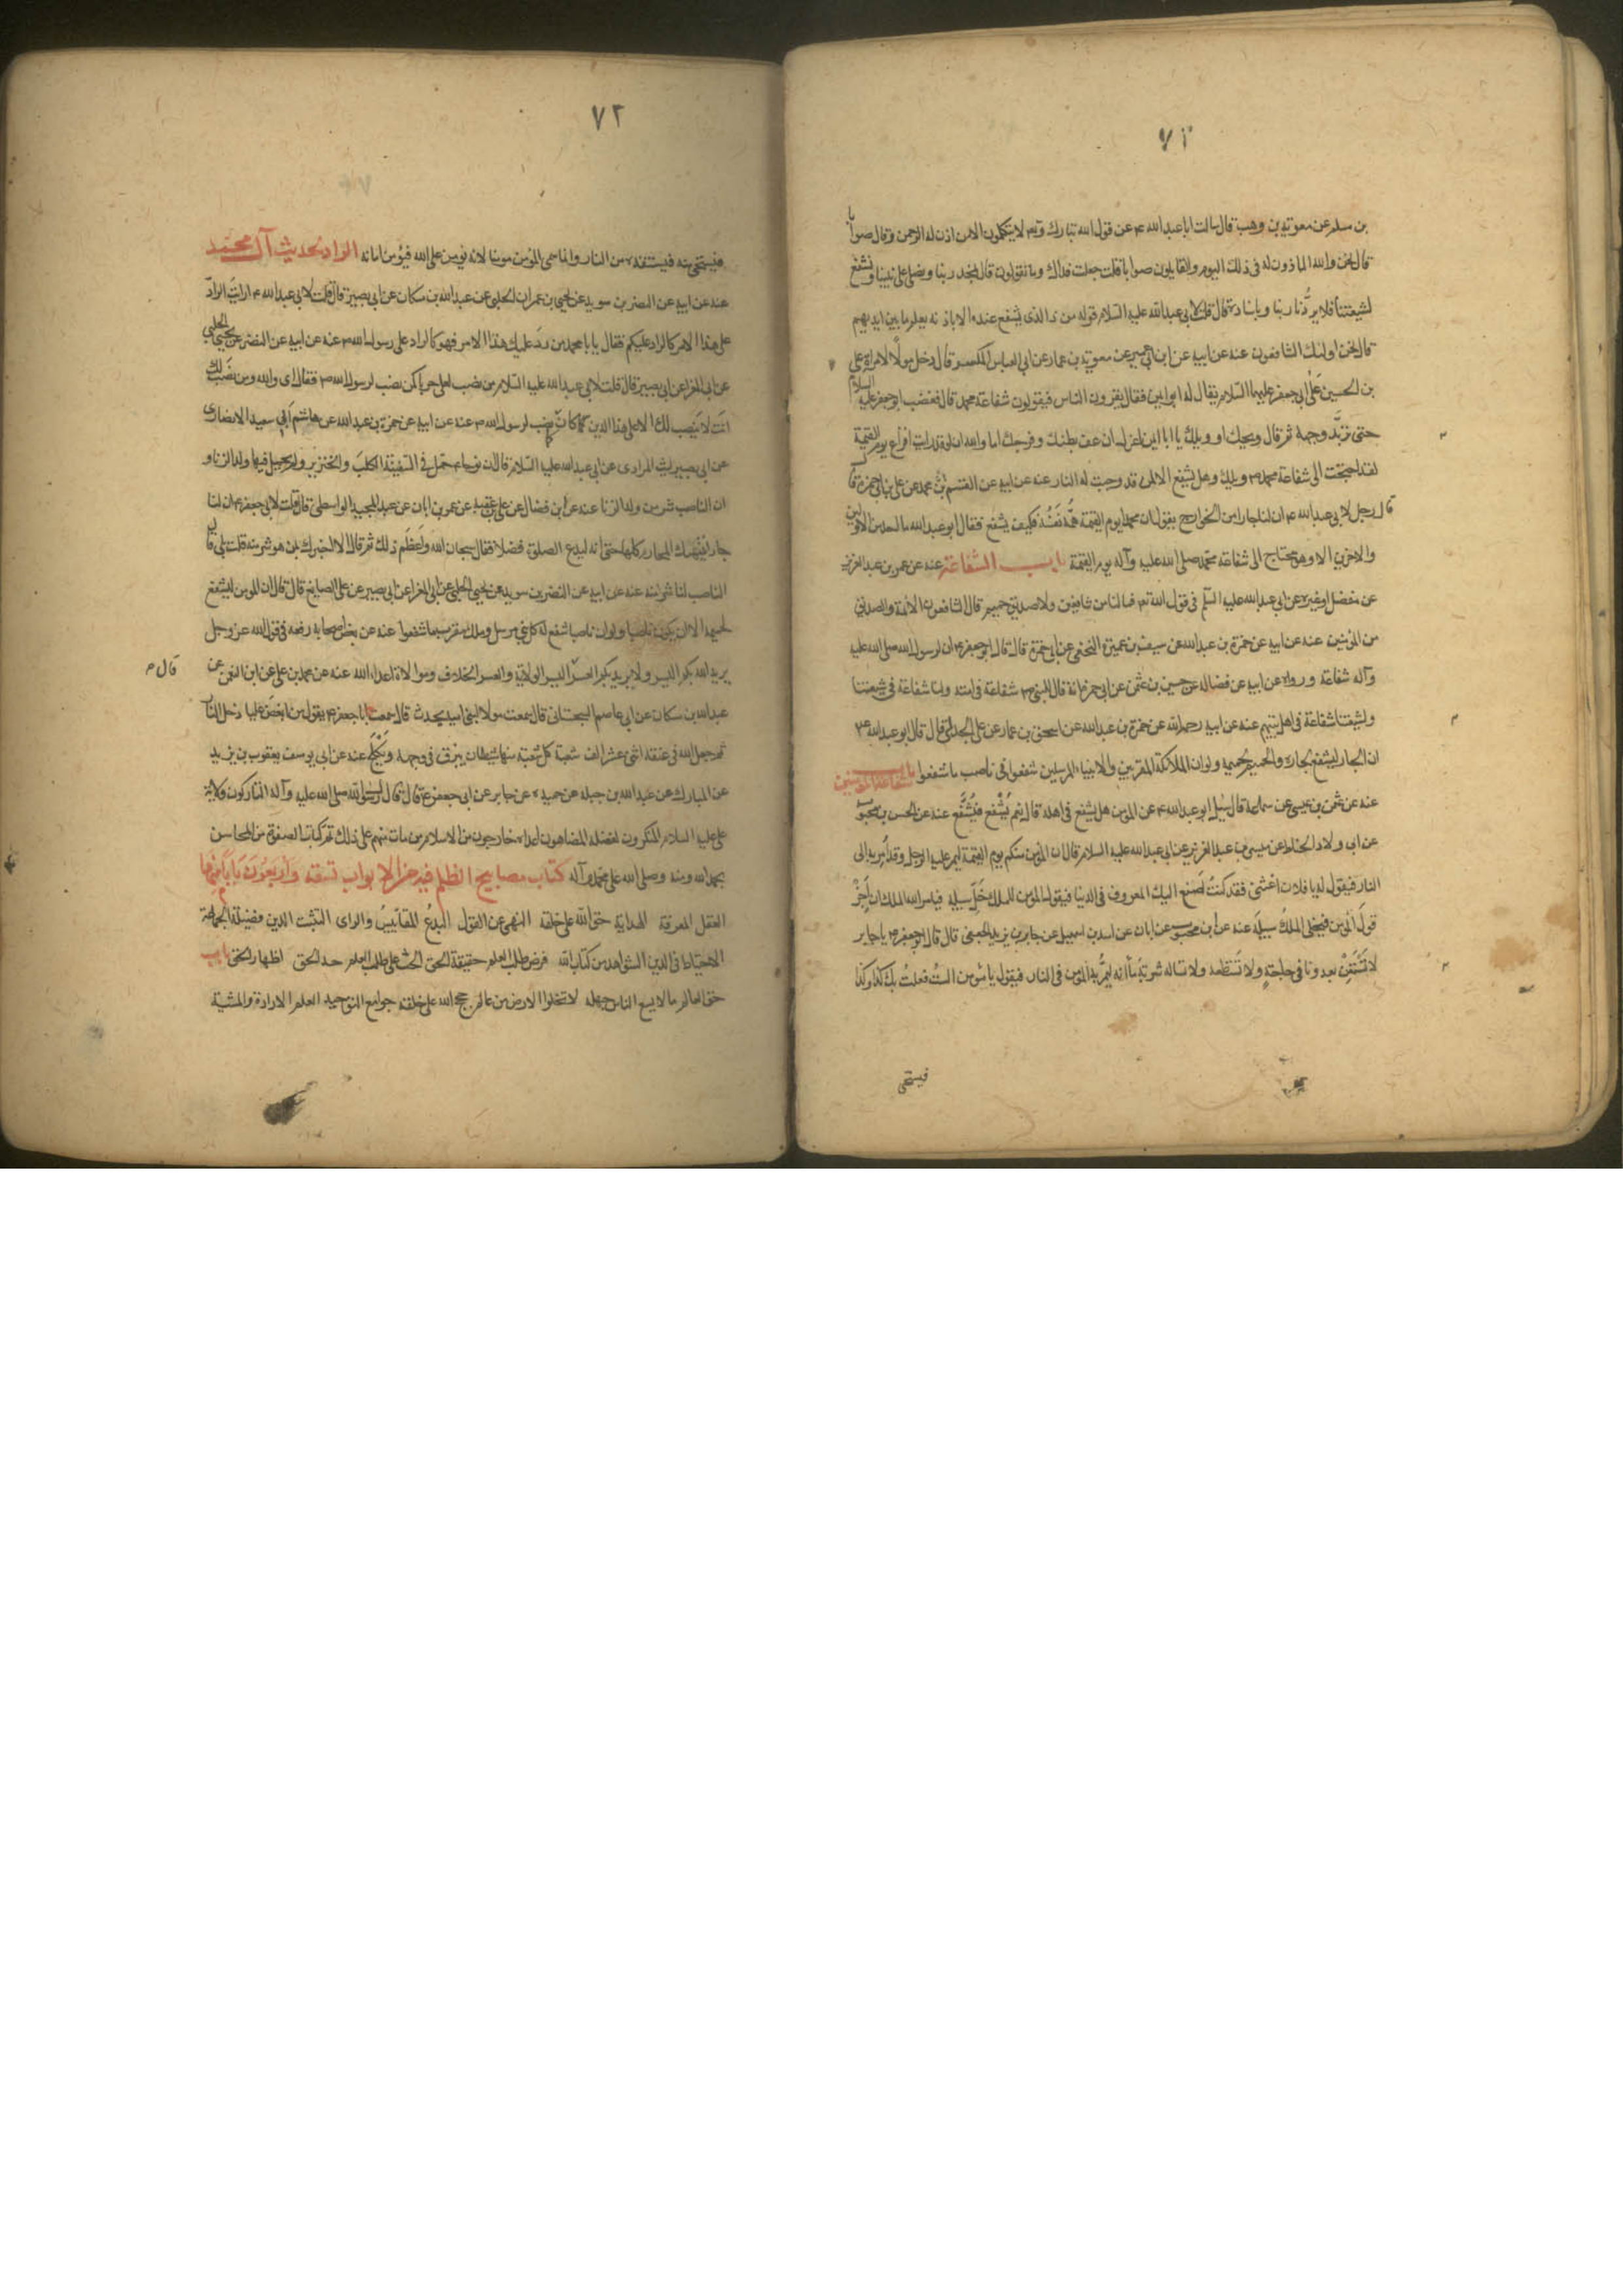 ٧١
بن مسلم عن معوية بن وهب قال سالت ابا عبدالله ع عن قول الله تبارك وتع لا يتكلمون الا من اذن له الرحمن وقال صوابا
قال نحن والله الماذون له فى ذلك اليوم والقايلون صوابا قلت جعلت فداك وما تقولون قال نمجد ربنا ونصلى على نبينا ونشفع
لشيعتنا فلا يردّنا ربنا وباسناده قال قلت لابى عبدالله عليه السلام قوله من ذا الذى يشفع عنده الا باذنه يعلم ما بين ايديهم
قال نحن اولئك الشافعون عنه عن ابيه عن ابن ابى عمير عن معوية بن عمار عن ابى العباس المكبر قال دخل مولى لامراة على
بن الحسين على ابى جعفر عليهما السلام يقال له ابو ايمن فقال يغرون الناس فيقولون شفاعة محمد قال فغضب ابو جعفر عليه السلام
حتى تربّد وجهه ثم قال ويحك او ويلك يا ابا ايمن اغرك ان عف بطنك وفرجك اما والله ان لو قد رايت افزاع يوم القيمة
لقد احتجت الى شفاعة محمد ص ويلك وهل يشفع الا لمن قد وجبت له النار عنه عن ابيه عن القسم بن محمد عن على بن ابى حمزة قال
قال رجل لابى عبدالله ع ان لنا جارا من الخوارج يقول ان محمدا يوم القيمة همّه نفسه فكيف يشفع فقال ابو عبدالله ما احد من الاولين
والاخرين الا وهو يحتاج الى شفاعة محمد صلى الله عليه وآله يوم القيمة باب الشفاعة عنه عن عمر بن عبد العزيز
عن مفضل او غيره عن ابى عبدالله عليه السلم فى قول الله تع فما لنا من شافعين ولا صديق حميم قال الشافعون الائمة والصديق
من المؤمنين عنه عن ابيه عن حمزة بن عبدالله عن سيف بن عميرة النخعى عن ابى حمزة قال قال ابو جعفر ع ان لرسول الله صلى الله عليه
وآله شفاعة ورواه عن ابيه عن فضاله عن حسين بن عثمن عن ابى حمزة انه قال للنبى ص شفاعة فى امته ولنا شفاعة فى شيعتنا
ولشيعتنا شفاعة فى اهل بيتهم عنه عن ابيه رحمه الله عن حمزة بن عبدالله عن اسحق بن عمار عن على الخدمى قال قال ابو عبدالله ع
ان الجار ليشفع لجاره والحميم لحميمه ولو ان الملائكة المقربين والانبياء المرسلين شفعوا فى ناصب ما شفعوا باب شفاعة المؤمنين
عنه عن عثمن بن عيسى عن سماعة قال سُئل ابو عبدالله ع عن المؤمن هل يشفع فى اهله قال نعم يُشفع فيُشفَّع عنه عن الحسن بن محبوب
عن ابى ولاد الحناط عن ميسر بن عبد العزيز عن ابى عبدالله عليه السلام قال ان المؤمن منكم يوم القيمة ليمر عليه الرجل وقد اُمر به الى
النار فيقول له يا فلان اغثنى فقد كنتُ اصنع اليك المعروف فى الدنيا فيقول المؤمن للملك خلّ سبيله فيامر الله الملك ان اَجز
قولَ المؤمن فيخلى الملكُ سبيلَه عنه عن ابن محبوب عن ابان عن اسد بن اسمعيل عن جابر بن يزيد الجعفى قال قال ابو جعفر ع يا جابر
لا تستعن بعدونا فى حاجةٍ ولا تستطعمه ولا تساله شربة ماء انه ليمرُّ به المؤمن فى النار فيقول يا مؤمن الستُ فعلتُ بك كذا وكذا
فيستحى
٧٢
فيستحى منه فيستنقذه من النار وانما سمى المؤمن مؤمنا لانه يؤمن على الله فيؤمن امانه الراد لحديث آل محمد
عنه عن ابيه عن النضر بن سويد عن يحيى بن عمران الحلبى عن عبدالله بن مسكان عن ابى بصير قال قلت لابى عبدالله ع ارايت الرادّ
على هذا الامر كالراد عليكم فقال يا با محمد من ردّ عليك هذا الامر فهو كالراد على رسول الله ص عنه عن ابيه عن النضر عن يحيى الحلبى
عن ابى المغرا عن ابى بصير قال قلت لابى عبدالله عليه السلام من نصب لعلى حربا كمن نصب لرسول الله ص فقال اى والله ومن نصب لك
انت لا ينصب لك الا على هذا الدين كما كان نصب لرسول الله ص عنه عن ابيه عن حمزة بن عبدالله عن هاشم ابى سعيد الانصارى
عن ابى بصير ليث المرادى عن ابى عبدالله عليه السلام قال ان نوحا ع حمل فى السفينة الكلب والخنزير ولم يحمل فيها ولد الزنا و
ان الناصب شر من ولد الزنا عنه عن ابن فضال عن على بن عقبه عن عمر بن ابان عن عبد الحميد الواسطى قال قلت لابى جعفر ع ان لنا
جارا ينتهك المحارم كلها حتى انه ليدع الصلوة فضلا فقال سبحان الله واعظم ذلك ثم قال الا اخبرك بمن هو شر منه قلت بلى قال
الناصب لنا شر منه عنه عن ابيه عن النضر بن سويد عن يحيى الحلبى عن ابى المغرا عن ابى بصير عن على الصايغ قال قال ان المؤمن ليشفع
لحميمه الا ان يكون ناصبا ولو ان ناصبا شفع له كل نبى مرسل وملك مقرب ما شفعوا عنه عن بعض اصحابه رفعه فى قول الله عز وجل
يريد الله بكم اليسر ولا يريد بكم العسر اليسر الولاية والعسر الخلاف وموالاة اعداء الله عنه عن محمد بن على عن ابن الفضل عن
قال م
عبدالله بن مسكان عن ابى عاصم السجستانى قال سمعت مولا لبنى امية يحدث قال سمعت ابا جعفر ع يقول من ابغض عليا دخل النار
ثم جعل الله فى عنقه اثنى عشر الف شعبة كل شعبة منها شيطان يبزق فى وجهه ويكلح عنه عن ابى يوسف يعقوب بن يزيد
عن المبارك عن عبدالله بن جبله عن حميده عن جابر عن ابى جعفر ع قال قال رسول الله صلى الله عليه وآله التاركون ولاية
على عليه السلام المنكرون لفضله المضاهون اعداءه خارجون من الاسلام من مات منهم على ذلك تم كتاب الصفوة من المحاسن
بحمد الله ومنه وصلى الله على محمد وآله كتاب مصابيح الظلم فيه من الابواب تسعة وأربعون بابا منها
العقل المعرفة الهداية حق الله على خلقه النهى عن القول البدعُ المقاييسُ والراى التثبت الدين فضيلة الجماعة
الاحتياط فى الدين الشواهد من كتاب الله فرض طلب العلم حقيقة الحق الحث على طلب العلم حد الحق اظهار الحق باب
حق العالم ما لا يسع الناس جهله لا تخلوا الارض من عالم حجج الله على خلقه جوامع التوحيد العلم الارادة والمشية